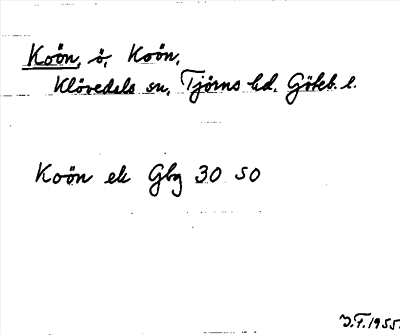 Koön, ö, Koön,
Klövedals sn, Tjörns hd, Göteb. l.
Koön ek Gbg 30 SO
J.F. 1955.